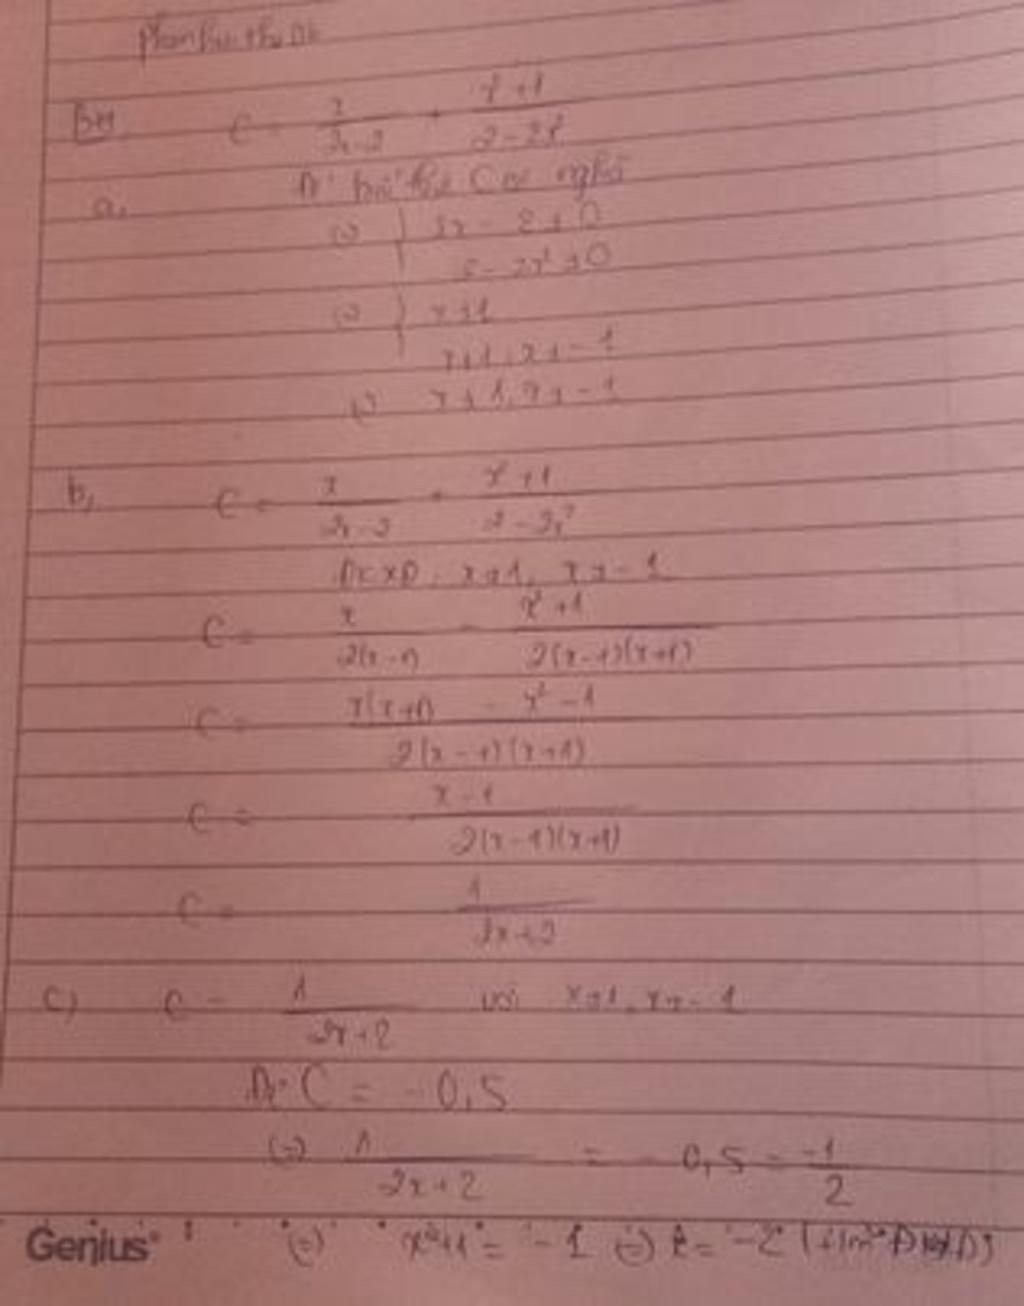 C = x/(2x-2) + (x²+1)/(2-2x²)
a, Để biểu thức C có nghĩa
(=) { 2x - 2 ≠ 0
2 - 2x² ≠ 0
(=) { x ≠ 1
x ≠ 1, x ≠ -1
(=) x ≠ 1, x ≠ -1
b, C = x/(2x-2) + (x²+1)/(2-2x²)
ĐKXĐ: x ≠ 1, x ≠ -1
C = x/(2(x-1)) - (x²+1)/(2(x-1)(x+1))
C = (x(x+1) - x² - 1)/(2(x-1)(x+1))
C = (x-1)/(2(x-1)(x+1))
C = 1/(2x+2)
c) C = 1/(2x+2) với x ≠ 1, x ≠ -1
Để C = -0,5
(=) 1/(2x+2) = -0,5 = -1/2
Genius (=) x+1 = -1 (=) x = -2